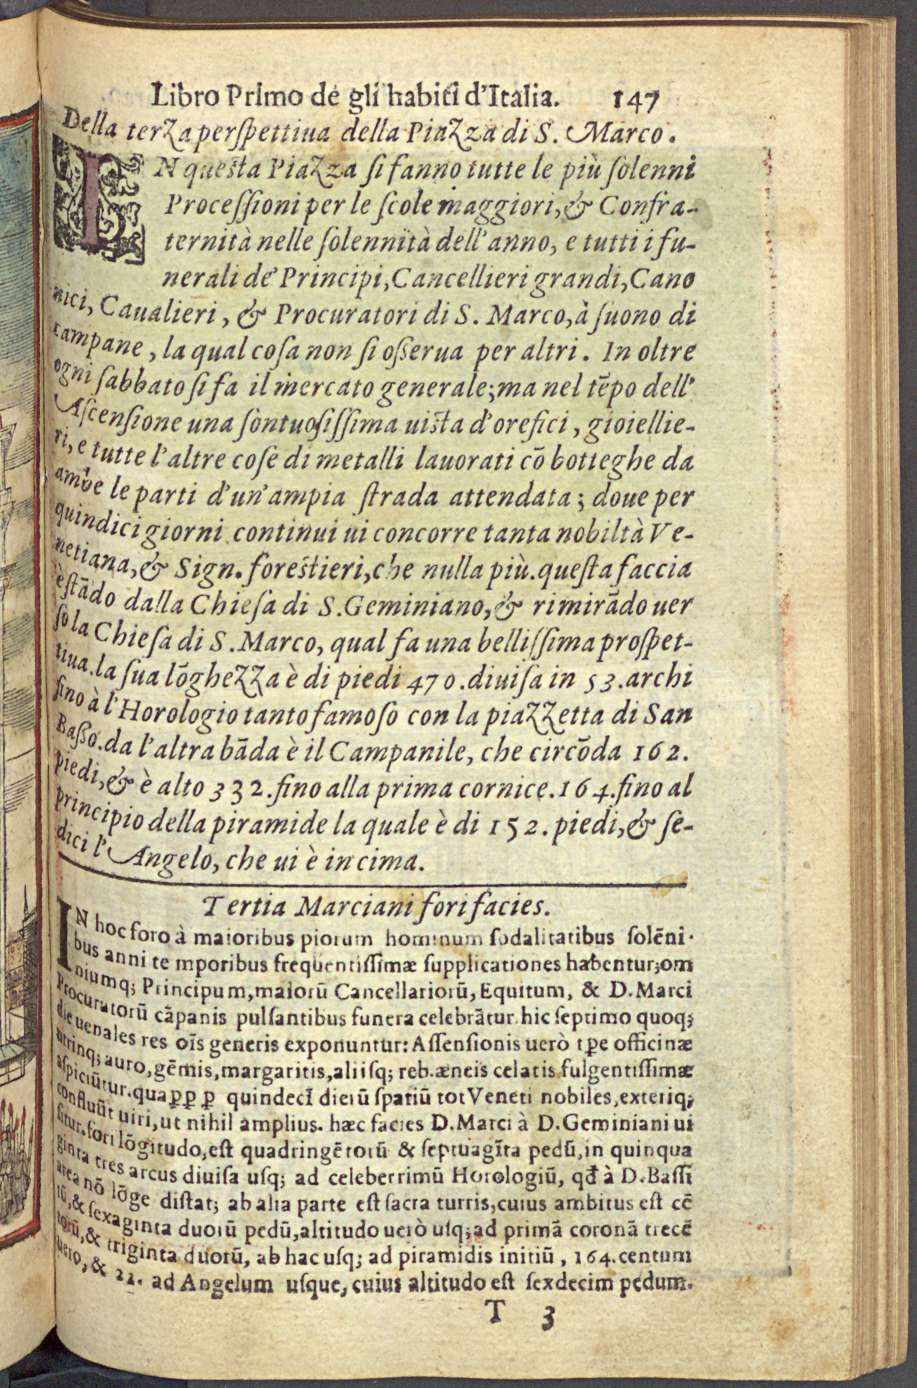 Libro Primo de gli habiti d'Italia. 147
Della terza perſpettiua della Piazza di S. Marco.
IN queſta Piazza ſi fanno tutte le più ſolenni
Proceſſioni per le ſcole maggiori, & Confra-
ternità nelle ſolennità dell'anno, e tutti i fu-
nerali de' Principi, Cancellieri grandi, Cano
nici, Caualieri, & Procuratori di S. Marco, à ſuono di
campane, la qual coſa non ſi oſſerua per altri. In oltre
ogni ſabbato ſi fa il mercato generale; ma nel tẽpo dell'
Aſcenſione una ſontuoſiſſima uiſta d'orefici, gioiellie-
ri, e tutte l'altre coſe di metalli lauorati cõ botteghe da
ambe le parti d'un'ampia ſtrada attendata; doue per
quindici giorni continui ui concorre tanta nobiltà Ve-
netiana, & Sign. foreſtieri, che nulla più. queſta faccia
è ſtãdo dalla Chieſa di S. Geminiano, & rimirãdo uer
ſo la Chieſa di S. Marco, qual fa una belliſſima proſpet-
tiua. la ſua lõghezza è di piedi 470. diuiſa in 53. archi
fino à l'Horologio tanto famoſo con la piazzetta di San
Baſſo. da l'altra bãda è il Campanile, che circõda 162.
piedi, & è alto 332. fino alla prima cornice. 164. fino al
principio della piramide la quale è di 152. piedi, & ſe-
dici l'Angelo, che ui è in cima.
Tertia Marciani fori facies.
IN hoc foro à maioribus piorum hominum ſodalitatibus ſolẽni-
bus anni te mporibus frequentiſſimæ ſupplicationes habentur; om
niumq; Principum, maiorũ Cancellariorũ, Equitum, & D. Marci
Procuratorũ cãpanis pulſantibus funera celebrãtur. hic ſeptimo quoq;
die uenales res oĩs generis exponuntur: Aſſenſionis uerò tꝑe officinæ
utrinq; auro, gẽmis, margaritis, aliiſq; reb. æneis celatis fulgentiſſimæ
aſpiciũtur. qua ꝑꝑ ꝑ quindecĩ dierũ ſpatiũ tot Veneti nobiles, exteriq;
confluũt uiri, ut nihil amplius. hæc facies D. Marci à D. Geminiani ui
ſitur. fori lõgitudo, eſt quadringẽtorũ & ſeptuagĩta pedũ, in quinqua
ginta tres arcus diuiſa uſq; ad celeberrimũ Horologiũ, qđ à D. Baſſi
area nõ lõge diſtat; ab alia parte eſt ſacra turris, cuius ambitus eſt cẽ
tũ, & ſexaginta duorũ pedũ, altitudo uerò uſq; ad primã coronã trecẽ
torũ, & triginta duorũ, ab hac uſq; ad piramidis initiũ, 164. centum
uero, & 22. ad Angelum uſque, cuius altitudo eſt ſexdecim pedum.
T 3